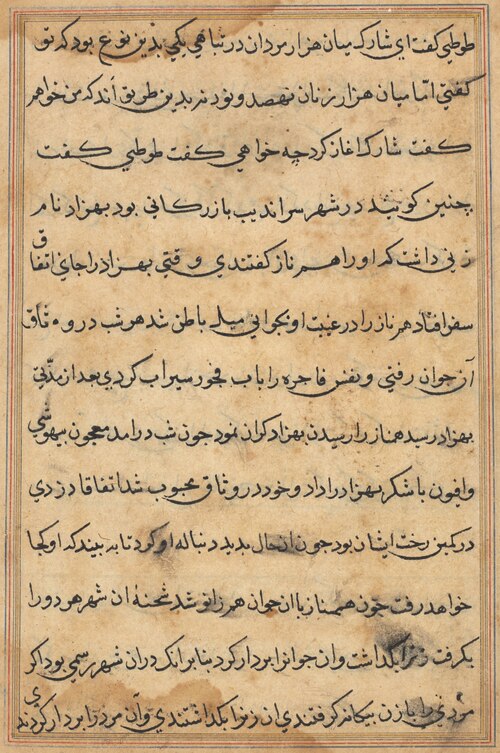 طوطی گفت ای شارک میان هزار مردان در تباهی یکی بدین نوع بود که تو
گفتی اما میان هزار زنان نهصد و نود نه بدین طریق اند که من خواهم
گفت شارک اغاز کرد چه خواهی گفت طوطی گفت
چنین گویند در شهر سراندیب بازرگانی بود بهزاد نام
زنی داشت که او را هم ناز گفتندی وقتی بهزاد را جای اتفاق
سفر افتاد هم ناز را در غیبت او بجوانی میل باطن شد هر شب در وثاق
آن جوان رفتی و نفس فاجره را باب فجور سیراب کردی بعد از مدتی
بهزاد رسید همناز را رسیدن بهزاد گران نمود چون شب درامد معجون بیهوشی
وافیون با شکر بهزاد را داد و خود در وثاق محبوب شد اتفاقا دزدی
در کمین رخت ایشان بود چون ان حال بدید دنباله او کرد تا به بیند که او کجا
خواهد رفت چون همناز با ان جوان هم زانو شد شحنهٔ ان شهر هر دو را
بگرفت زنرا بگذاشت وان جوانرا بردار کرد بنابرانک دران شهر رسمی بود اگر
مردی را با زن بیگانه گرفتندی ان زنرا بگذاشتندی وآن مرد را بردار کردندی